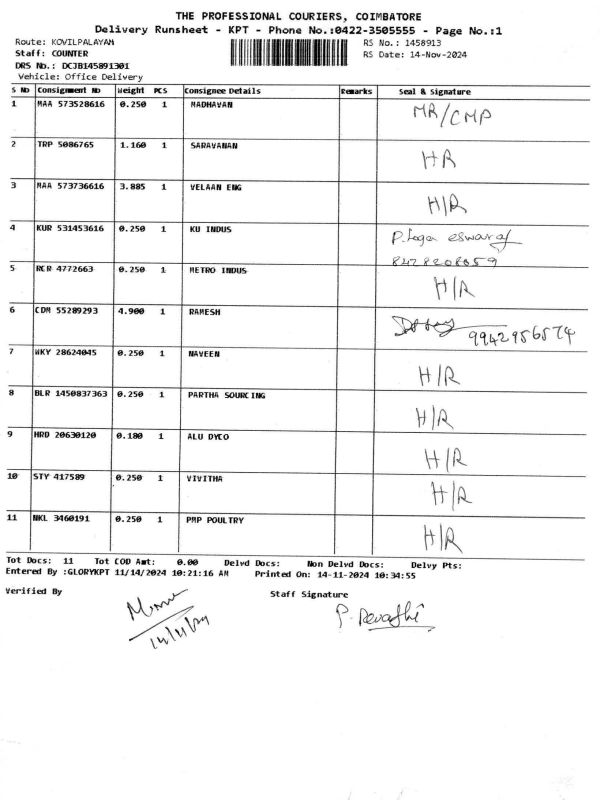 THE PROFESSIONAL COURIERS, COIMBATORE
Delivery Runsheet - KPT - Phone No.:0422-3505555 - Page No.:1
Route: KOVILPALAYAM RS No.: 1458913
Staff: COUNTER RS Date: 14-Nov-2024
DRS No.: DCJB145891301
Vehicle: Office Delivery
S No Consignment No Weight PCS Consignee Details Remarks Seal & Signature
1 MAA 573528616 0.250 1 MADHAVAN MR/CMP
2 TRP 5086765 1.160 1 SARAVANAN HR
3 MAA 573736616 3.885 1 VELAAN ENG H/R
4 KUR 531453616 0.250 1 KU INDUS P. Loga eswaraj
8428208059
5 RCR 4772663 0.250 1 METRO INDUS H/R
6 CDM 55289293 4.900 1 RAMESH 9942956574
7 WKY 28624045 0.250 1 NAVEEN H/R
8 BLR 1450837363 0.250 1 PARTHA SOURCING H/R
9 HRD 20630120 0.180 1 ALU DYCO H/R
10 STY 417589 0.250 1 VIVITHA H/R
11 NKL 3460191 0.250 1 PMP POULTRY H/R
Tot Docs: 11 Tot COD Amt: 0.00 Delvd Docs: Non Delvd Docs: Delvy Pts:
Entered By :GLORYKPT 11/14/2024 10:21:16 AM Printed On: 14-11-2024 10:34:55
Verified By Staff Signature
P. Revathi
14/11/24